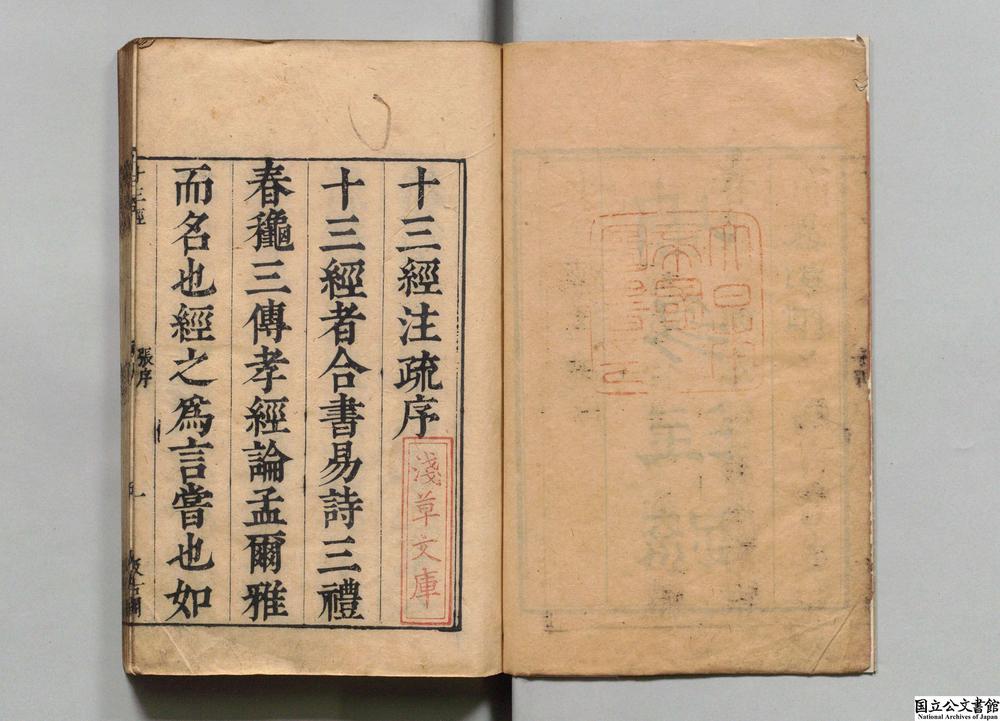 十三經注疏序
淺草文庫
十三經者合書易詩三禮
春龝三傳孝經論孟爾雅
而名也經之爲言嘗也如
十三經
張序
一
国立公文書館
National Archives of Japan